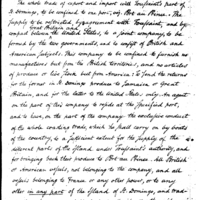 The whole trade of export and import with Toussaint's part of
St Domingo, to be confined to one port; say Port au Prince. The
supply to be restricted, by agreement with Toussaint, and by
compact between Great Britain and the United States, to a joint company, to be
formed by the two governments, and to consist of British and
American subjects. This company to be confined to furnish no
manufactures but from the British Dominions, and no articles
of produce or live Stock but from America; To fund the returns
in the form of St Domingo produce to Jamaica, or Great
Britain, and for the latter to the United States only. An agent
on the part of this company to reside at the specified port,
and to have, on the part of the company the exclusive conduct
of the whole coasting trade, which he must carry on by boats
of the country, to a sufficient extent for the supply of the
different parts of the Island under Toussaint's authority, and
for bringing back their produce to Port au Prince. All British
or American vessels, not belonging to the company, and all
vessels belonging to France or any other power, or to any
other in any part of the Island of St Domingo, and trad-